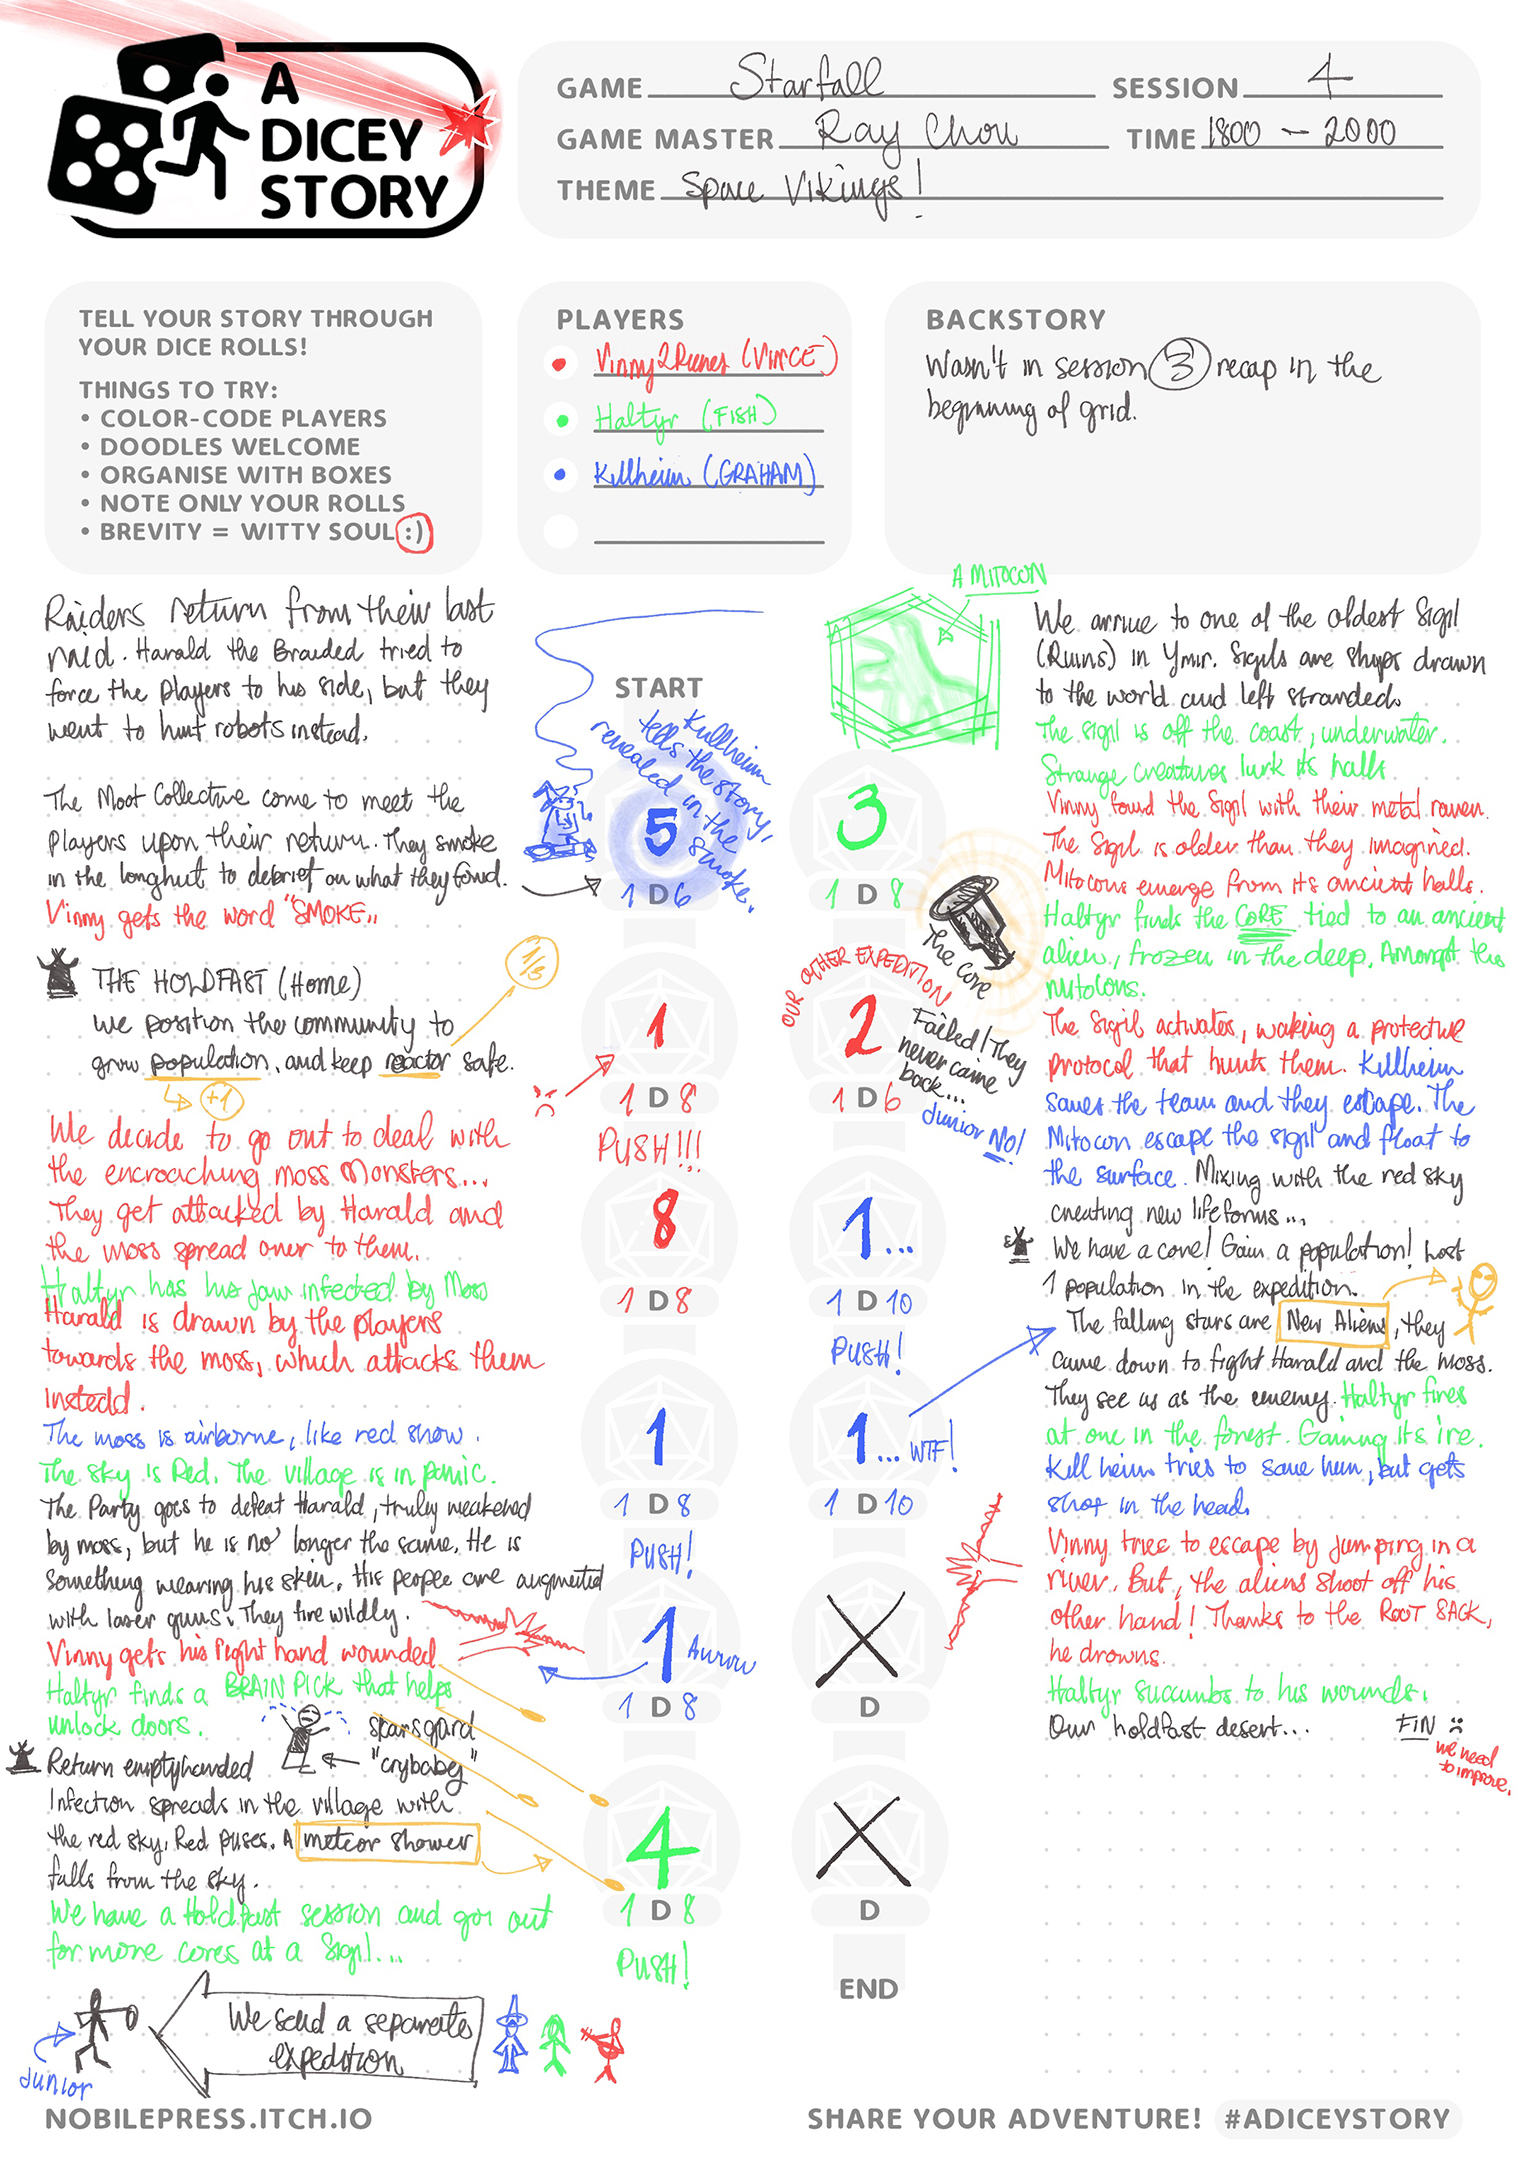 A
DICEY
STORY
GAME Starfall SESSION 4
GAME MASTER Ray Chou TIME 1800 – 2000
THEME Space Vikings!
TELL YOUR STORY THROUGH
YOUR DICE ROLLS!
THINGS TO TRY:
• COLOR-CODE PLAYERS
• DOODLES WELCOME
• ORGANISE WITH BOXES
• NOTE ONLY YOUR ROLLS
• BREVITY = WITTY SOUL :)
PLAYERS
Vinny2Runes (VINCE)
Haltyr (FISH)
Killheim (GRAHAM)
BACKSTORY
Wasn't in session 3 recap in the
beginning of grid.
Raiders return from their last
raid. Harald the Braided tried to
force the players to his side, but they
went to hunt robots instead.
The Moot Collective come to meet the
Players upon their return. They smoke
in the longhut to debrief on what they found.
Vinny gets the word "SMOKE"
THE HOLDFAST (Home)
We position the community to
grow population, and keep reactor safe.
+1
1/3
We decide to go out to deal with
the encroaching moss monsters...
They get attacked by Harald and
the moss spread over to them.
Haltyr has his jaw infected by Moss
Harald is drawn by the players
towards the moss, which attacks them
instead.
The moss is airborne, like red snow.
The sky is Red. The village is in panic.
The Party goes to defeat Harald, truly weakened
by moss, but he is no longer the same. He is
something wearing his skin. His people are augmented
with laser guns. They fire wildly.
Vinny gets his right hand wounded
Haltyr finds a BRAIN PICK that helps
unlock doors.
skarsgard
"crybaby"
Return emptyhanded
Infection spreads in the village with
the red sky. Red puses. A meteor shower
falls from the sky.
We have a Holdfast session and go out
for more cores at a Sigil...
We send a separate
expedition
Junior
START
Killheim
tells the story,
revealed in the
smoke.
5
1 D 6
1
1 D 8
PUSH!!!
8
1 D 8
1
1 D 8
PUSH!
1
1 D 8
4
1 D 8
PUSH!
A MITOCON
3
1 D 8
The Core
OUR OTHER EXPEDITION
2
1 D 6
Failed! They
never came
back...
Junior NO!
1...
1 D 10
PUSH!
1... WTF!
1 D 10
D
D
END
We arrive to one of the oldest Sigil
(Ruins) in Ymir. Sigils are ships drawn
to the world and left stranded.
The Sigil is off the coast, underwater.
Strange creatures lurk its halls
Vinny found the Sigil with their metal raven.
The Sigil is older than they imagined.
Mitocons emerge from its ancient halls.
Haltyr finds the CORE tied to an ancient
alien, frozen in the deep. Amongst the
mitocons.
The Sigil activates, waking a protective
protocol that hunts them. Killheim
saves the team and they escape. The
Mitocon escape the sigil and float to
the surface. Mixing with the red sky
creating new lifeforms...
We have a core! Gain a population! Lost
1 population in the expedition.
The falling stars are New Aliens, they
came down to fight Harald and the moss.
They see us as the enemy. Haltyr fires
at one in the forest. Gaining its ire.
Killheim tries to save him, but gets
shot in the head.
Vinny tries to escape by jumping in a
river. But, the aliens shoot off his
other hand! Thanks to the ROOT SACK,
he drowns.
Haltyr succumbs to his wounds.
Our holdfast desert...
FIN
we need
to improve.
NOBILEPRESS.ITCH.IO
SHARE YOUR ADVENTURE! #ADICEYSTORY